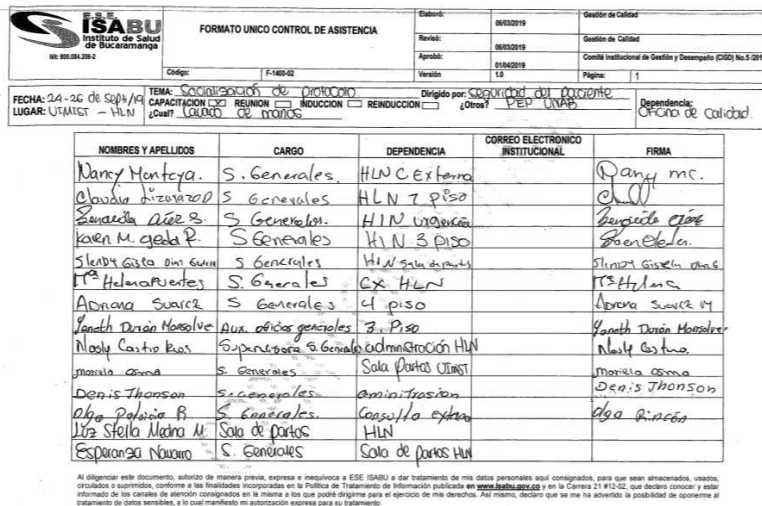 E.S.E.
ISABU
Instituto de Salud
de Bucaramanga
Nit: 800.084.206-2
FORMATO UNICO CONTROL DE ASISTENCIA
Elaboró: 06/03/2019 Gestión de Calidad
Revisó: 06/03/2019 Gestión de Calidad
Aprobó: 01/04/2019 Comité Institucional de Gestión y Desempeño (CIGD) No.5 /201
Código: F-1400-02 Versión 1.0 Página: 1
FECHA: 24-26 de Sept/19 TEMA: Socialización de protocolo Dirigido por: seguridad del paciente
LUGAR: UIMIST - HLN CAPACITACION REUNION INDUCCION REINDUCCION ¿Otros? PEP UNAB Dependencia:
¿Cual? Lavado de manos Oficina de calidad.
NOMBRES Y APELLIDOS CARGO DEPENDENCIA CORREO ELECTRONICO INSTITUCIONAL FIRMA
Nancy Montoya. S. Generales. HLN C Externa
Claudia S Generales HLN 7 piso
S Generales. HLN urgencia
Karen M. S Generales HLN 3 piso
S Generales HLN Sala de partos
Mª Helena Fuentes S. Generales CX HLN Mª Helena
Adriana Suarez S Generales 4 piso Adriana Suarez M
Yaneth Durán Monsalve Aux. oficios generales 3. Piso Yaneth Durán Monsalve
Nasly Castro Rios Supervisora S. Generales administración HLN Nasly Castro.
mariela osma S. Generales Sala Partos UIMIST mariela osma
Denis Jhonson S. generales Denis Jhonson
Olga Patricia R S. Generales. Consulta externa Olga Rincón
Luz Stella Medina M Sala de partos HLN
Esperanza Navarro S. Generales Sala de partos HLN
Al diligenciar este documento, autorizo de manera previa, expresa e inequívoca a ESE ISABU a dar tratamiento de mis datos personales aquí consignados, para que sean almacenados, usados,
circulados o suprimidos, conforme a las finalidades incorporadas en la Política de Tratamiento de Información publicada en www.isabu.gov.co y en la Carrera 21 #12-02, que declaro conocer y estar
informado de los canales de atención consignados en la misma a los que podré dirigirme para el ejercicio de mis derechos. Así mismo, declaro que se me ha advertido la posibilidad de oponerme al
tratamiento de datos sensibles, a lo cual manifiesto mi autorización expresa para su tratamiento.